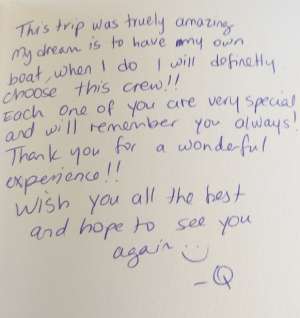 This trip was truely amazing
My dream is to have my own
boat, when I do I will definetly
choose this crew!!
Each one of you are very special
and will remember you always!
Thank you for a wonderful
experience!!
Wish you all the best
and hope to see you
again :)
- Q